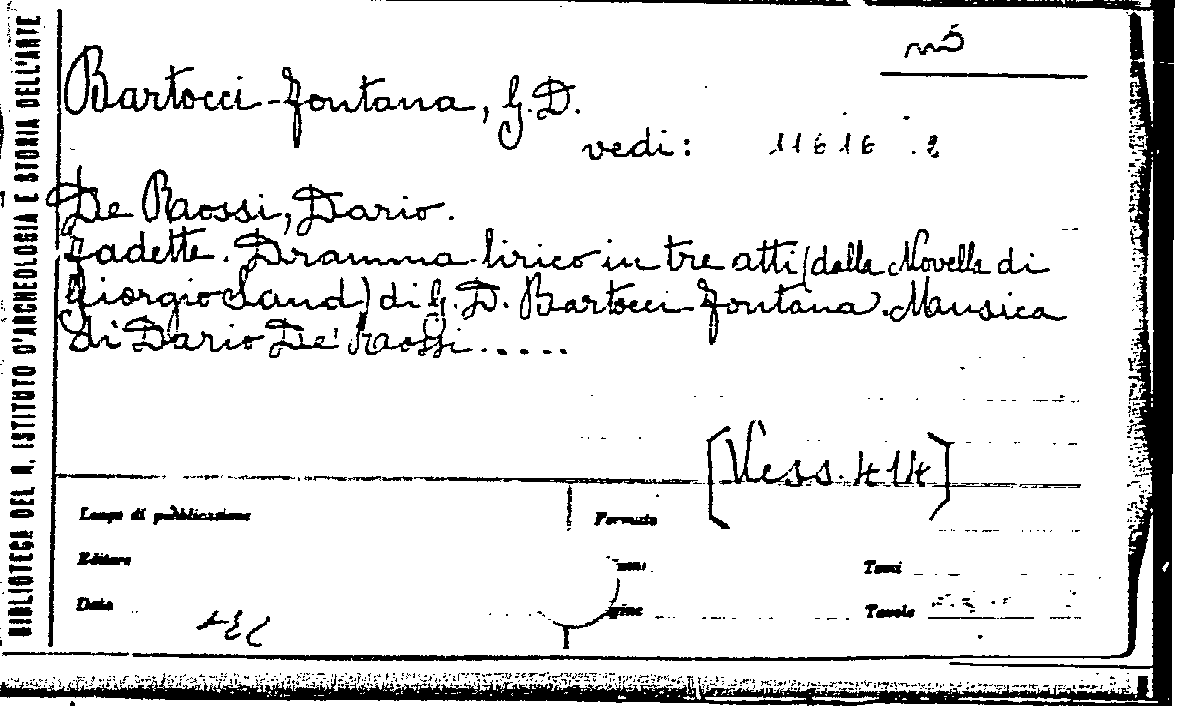 BIBLIOTECA DEL R. ISTITUTO D'ARCHEOLOGIA E STORIA DELL'ARTE
Bartocci-Fontana, G.D.
vedi: 11616 .2
De Raossi, Dario.
Fadette. Dramma lirico in tre atti (dalla Novella di
Giorgio Sand) di G. D. Bartocci Fontana. Musica
di Dario De' Raossi.....
[Vess. 414]
Luogo di pubblicazione
Formato
Editore
Tomi
Data
Tavole